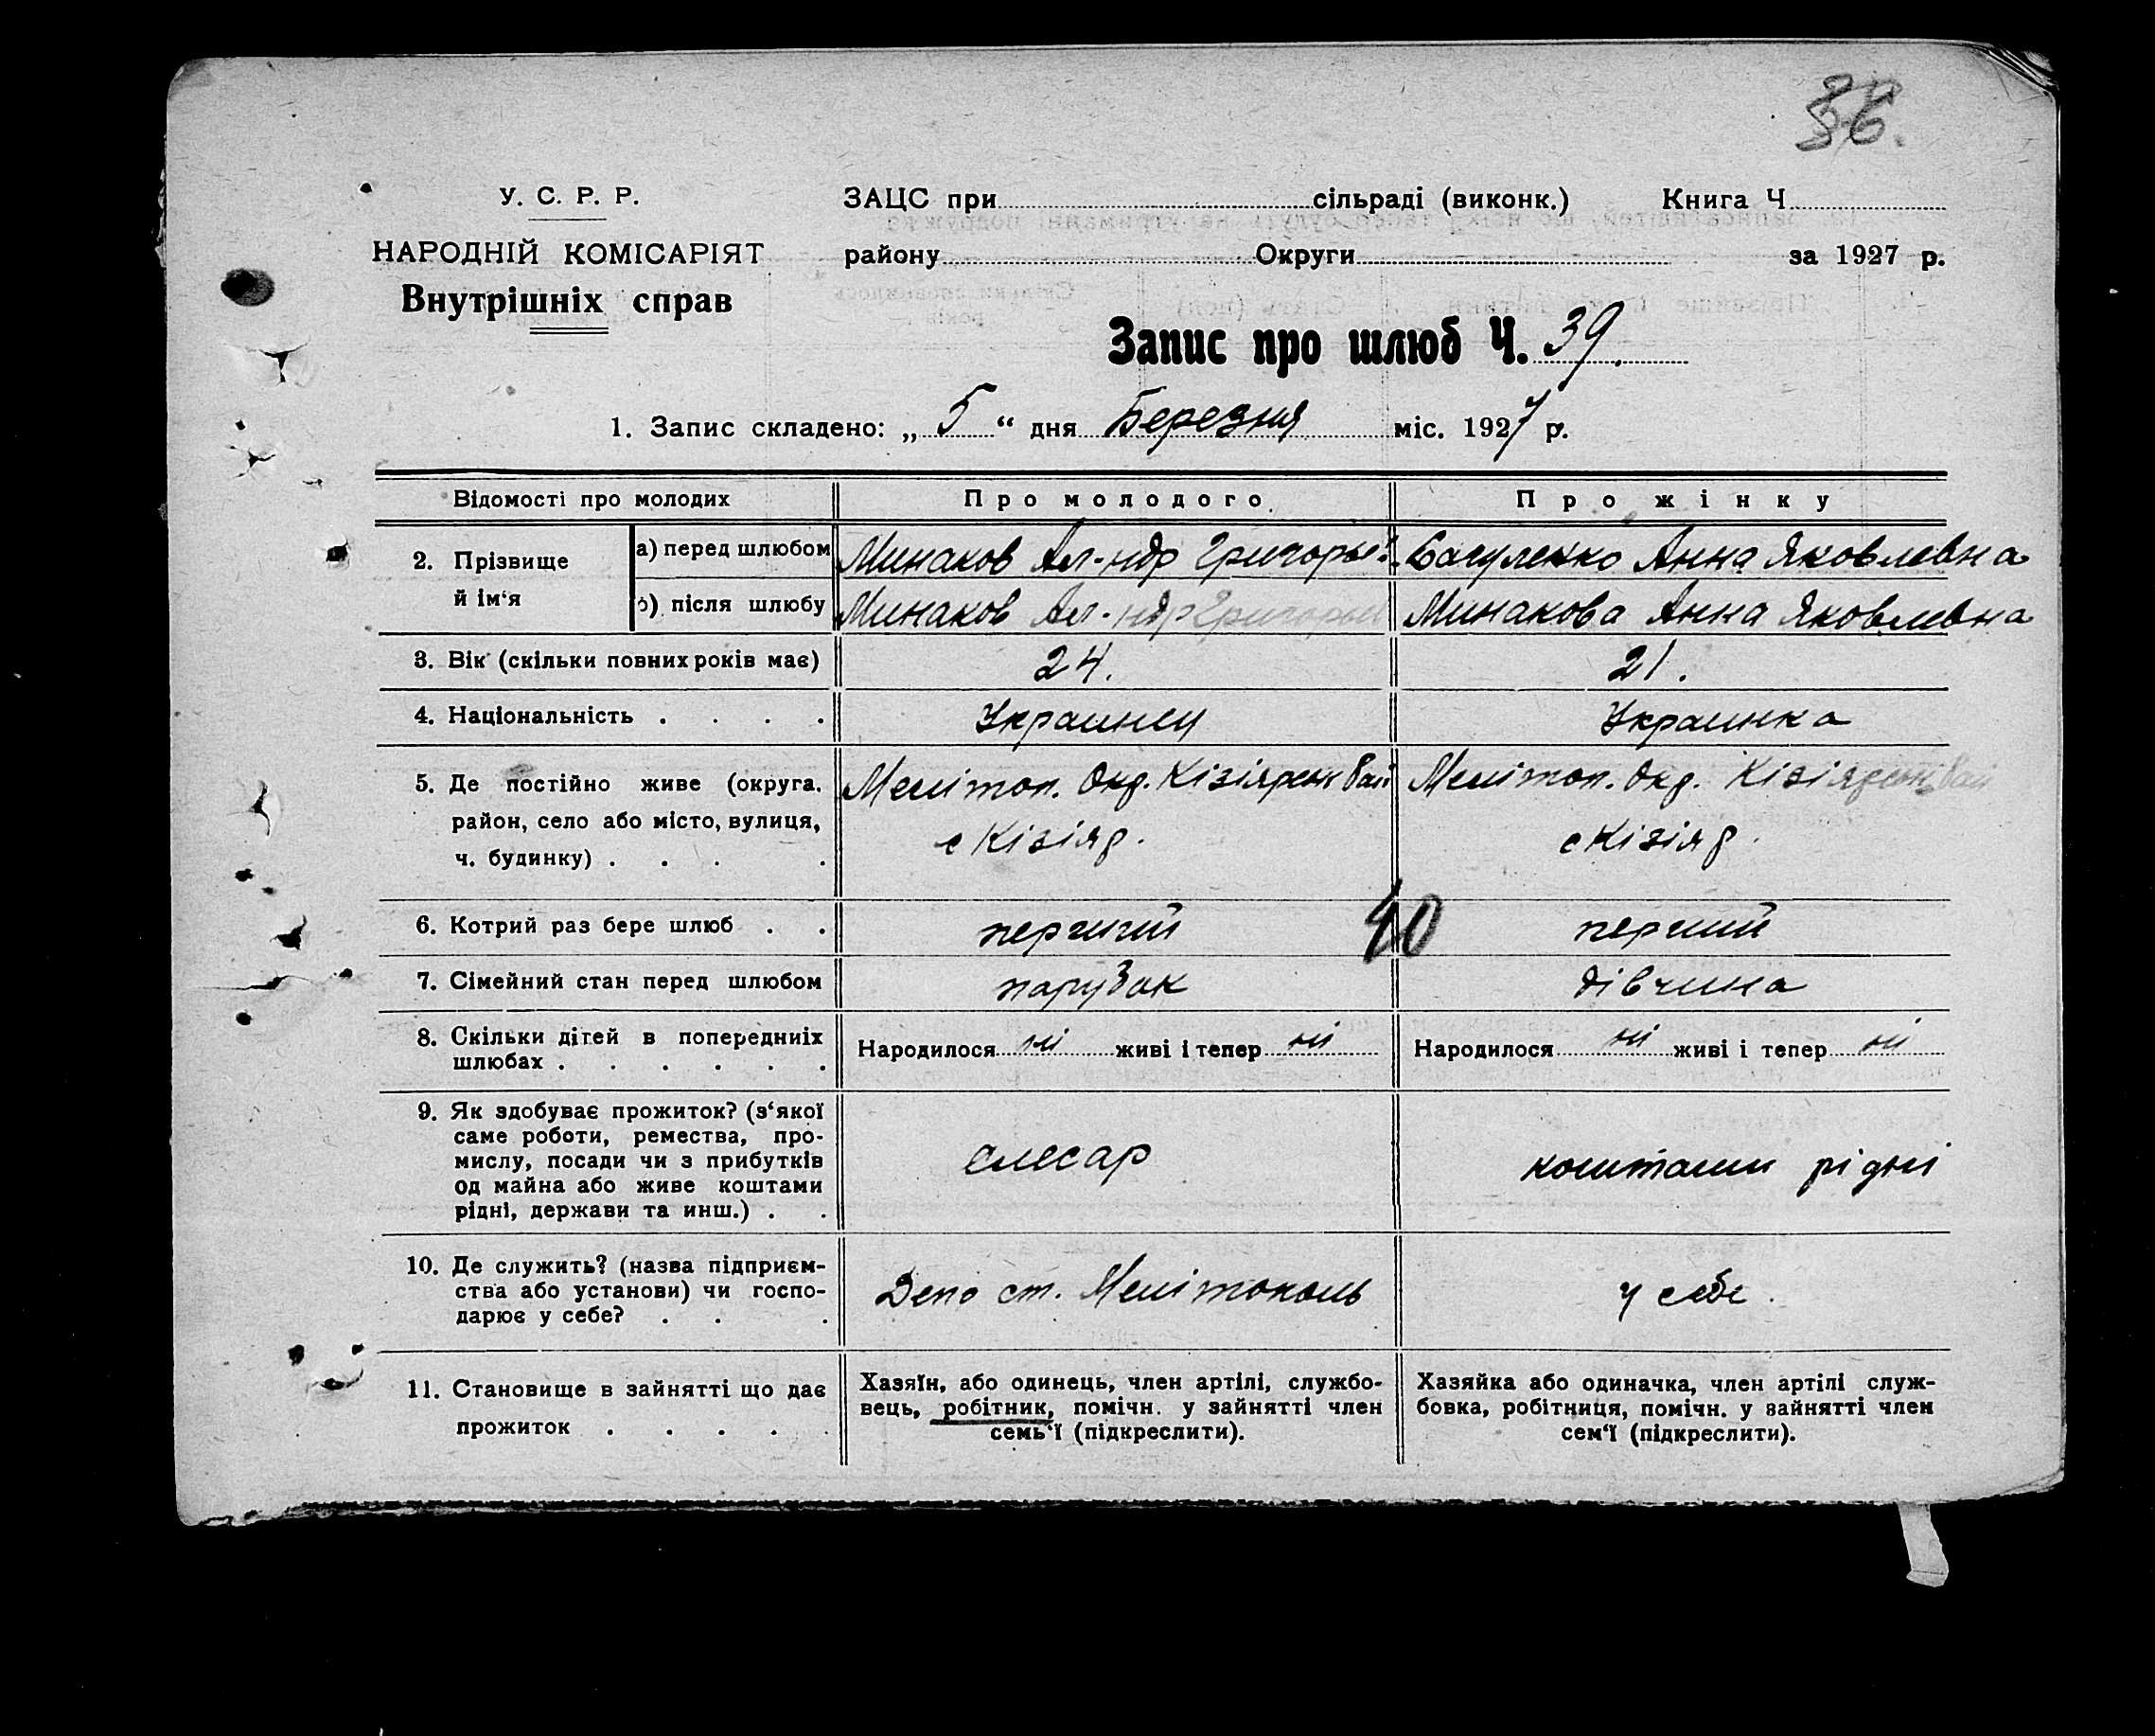 36.
У. С. Р. Р.
ЗАЦС при сільраді (виконк.) Книга Ч
НАРОДНІЙ КОМІСАРІЯТ
району Округи за 1927 р.
Внутрішніх справ
Запис про шлюб Ч. 39.
1. Запис складено: „ 5 “ дня Березня міс. 1927 р.
Відомості про молодих
Про молодого.
Про жінку
2. Прізвище й ім‘я
а) перед шлюбом
Минаков Ал-ндр Григорьев.
Анна Яковлевна
б) після шлюбу
Минаков Ал-ндр Григорьев
Минакова Анна Яковлевна
3. Вік (скільки повних років має)
24.
21.
4. Національність . . . .
Украинец
Украинка
5. Де постійно живе (округа,
район, село або місто, вулиця,
ч. будинку) . . . .
Мелітоп. Окр. Кізіярськ Рай
с Кізіяр.
Мелітоп. Окр. Кізіярськ Рай
с Кізіяр.
6. Котрий раз бере шлюб . .
перший
40
перший
7. Сімейний стан перед шлюбом
парубок
дівчина
8. Скільки дітей в попередниіх
шлюбах . . . . . .
Народилося ні живі і тепер ні
Народилося ні живі і тепер ні
9. Як здобуває прожиток? (з‘якої
саме роботи, ремества, про-
мислу, посади чи з прибутків
од майна або живе коштами
рідні, держави та инш.) . .
слесар
коштами рідні
10. Де служить? (назва підприєм-
ства або установи) чи госпо-
дарює у себе? . . .
Депо ст. Мелітополь
у себе.
11. Становище в зайнятті що дає
прожиток . . . . .
Хазяїн, або одинець, член артілі, службо-
вець, робітник, помічн. у зайнятті член
семь‘ї (підкреслити).
Хазяйка або одиначка, член артілі служ-
бовка, робітниця, помічн. у зайнятті член
сем‘ї (підкреслити).